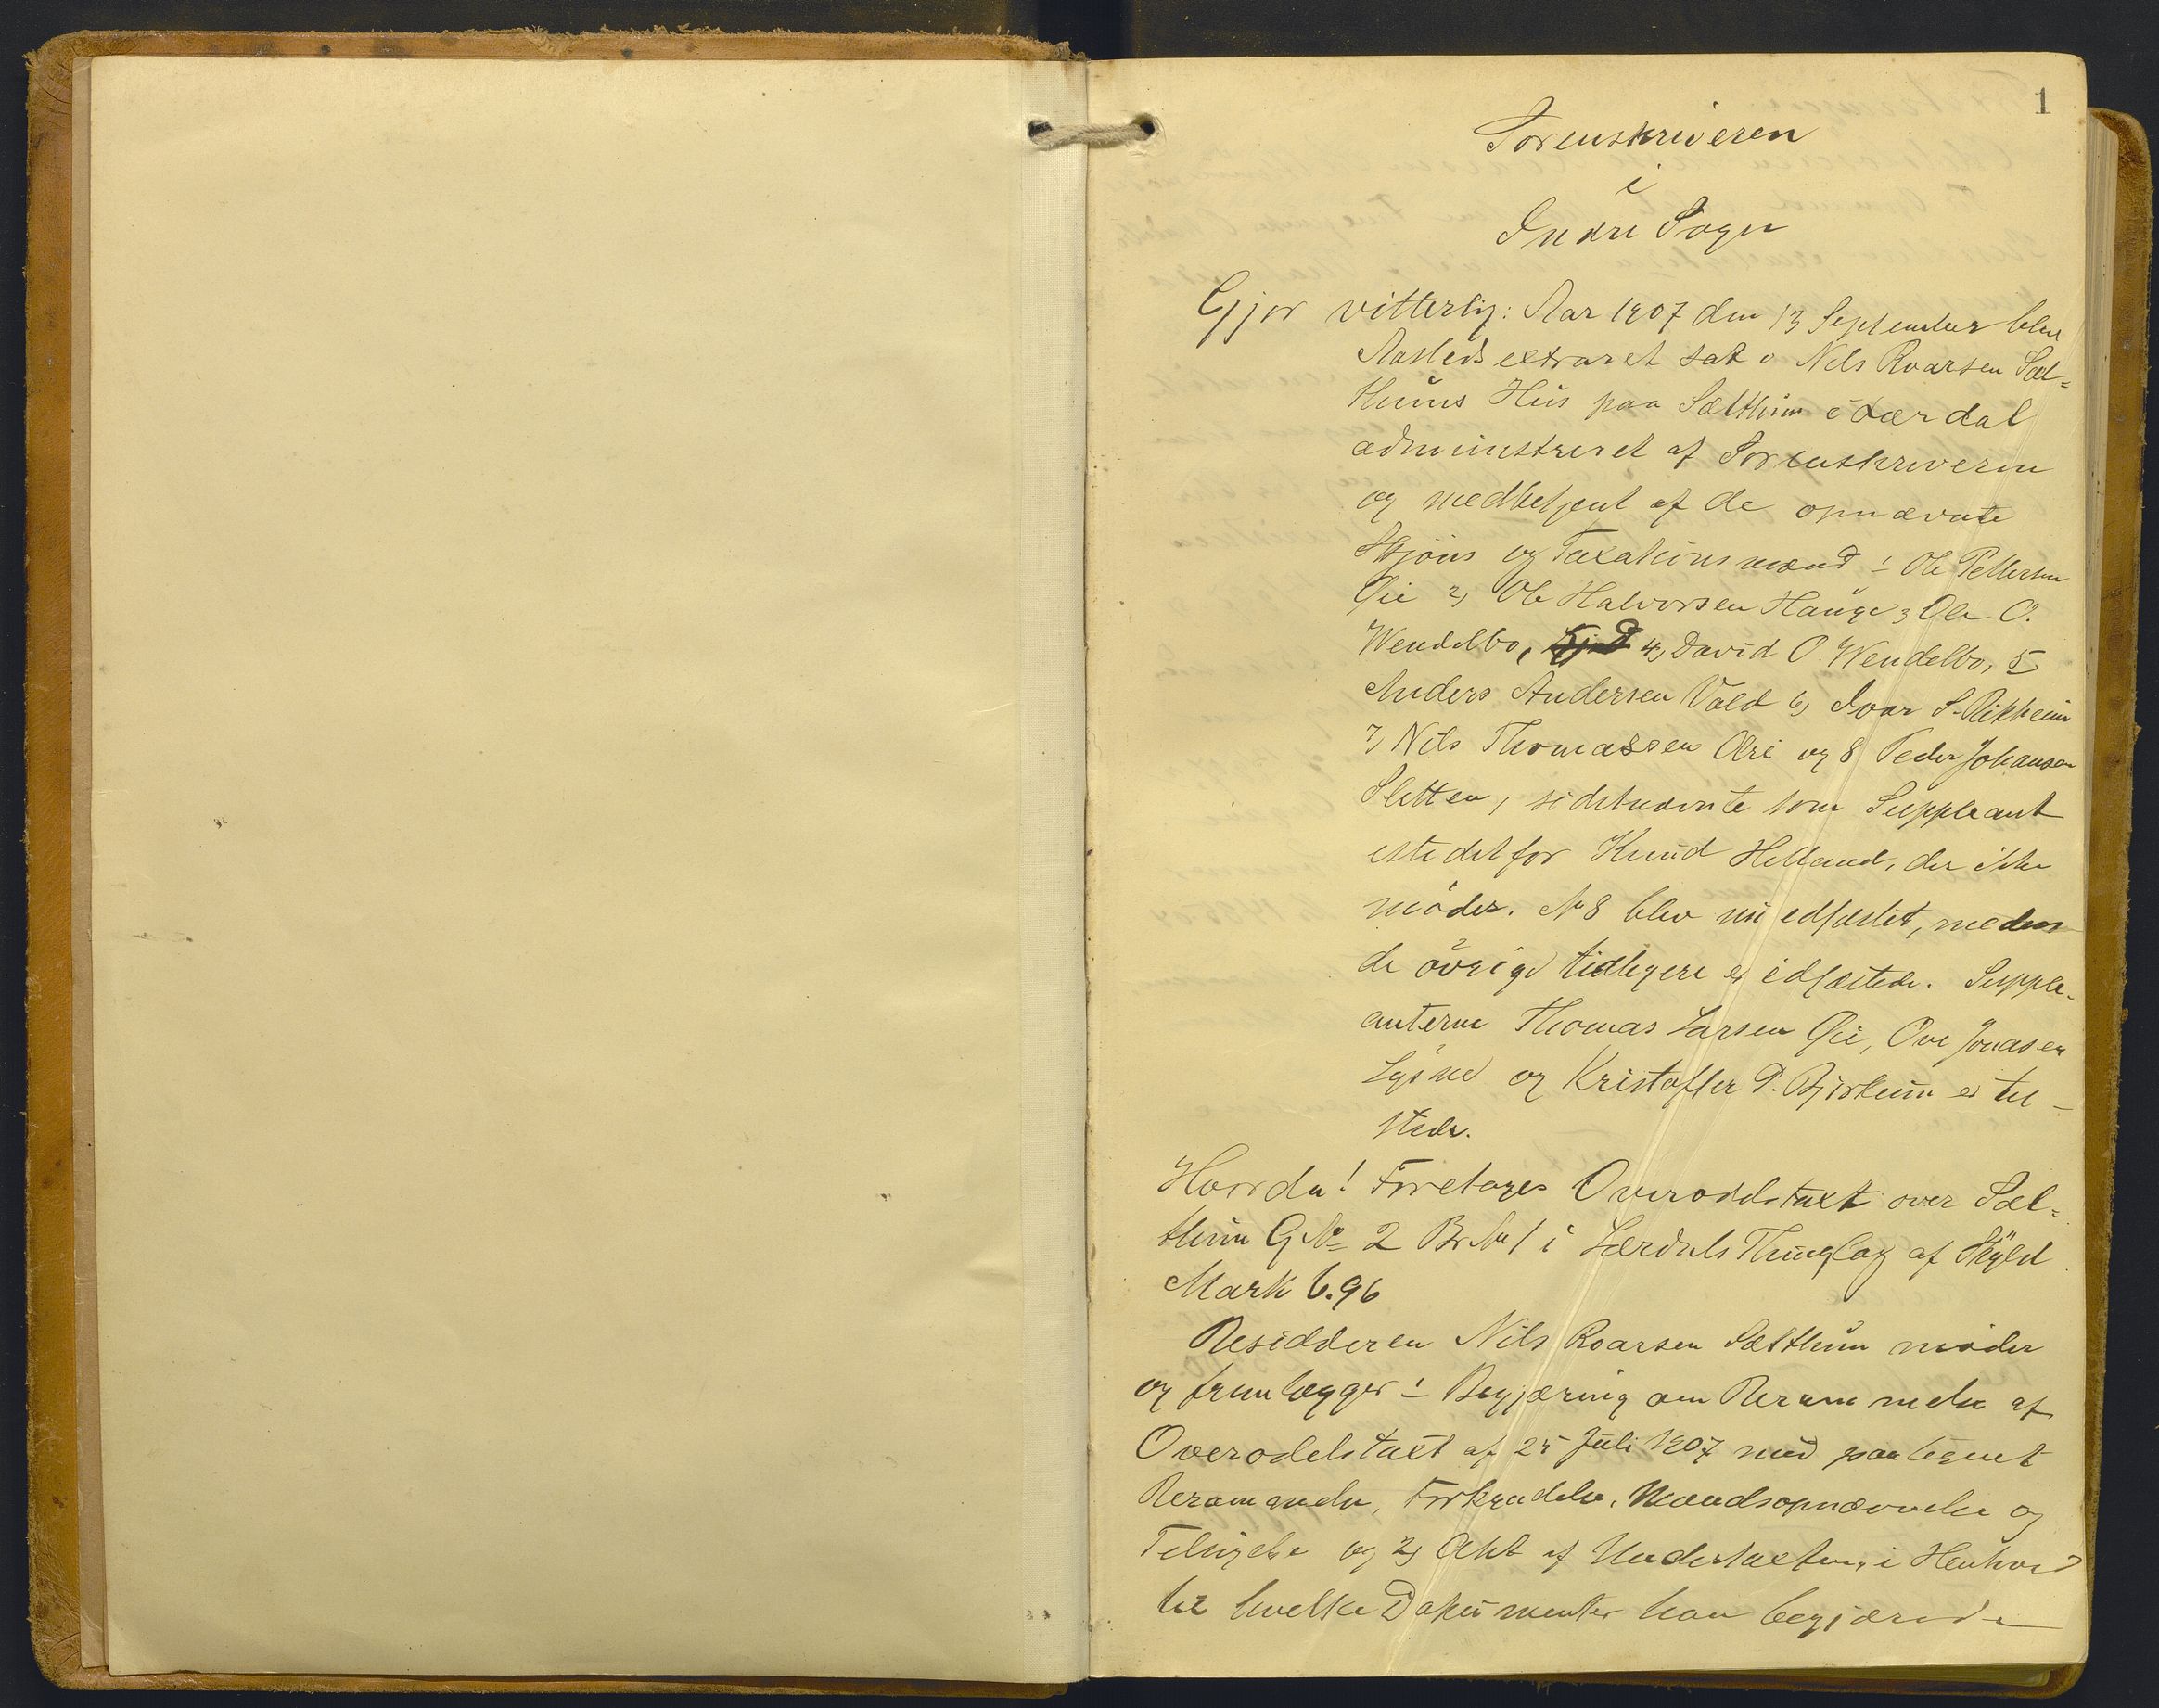 1
Sorenskriveren
i
Indre Sogn
Gjør vitterlig: Aar 1907 den 13 September blev
Aastedsextraret sat i Nils Roarsen Sæl=
thuns Hus paa Sælthun i Lærdal
administreret af Sorenskriveren
og medbetjent af de opnævnte
Skjöns og Taxationsmænd 1 Ole Pettersen
Øie 2, Ole Halvorsen Hauge 3 Ole O.
Wendelbo, 4, David O. Wendelbo, 5
Anders Andersen Vold 6, Ivar S. Rikheim
7, Nils Thomassen Æri og 8 Peder Johansen
Sletten, sidstnævnte som Suppleant
istedetfor Knud Helland, der ikke
möder. No 8 blev nu edfæstet, medens
de övrige tidligere er edfæstede. Supple-
anterne Thomas Larsen Øie, Ove Jonasen
Lysne og Kristoffer P. Bjørkum er til-
stede.
Hvorda! Foretoges Overodelstaxt over Sæl=
thun G No 2 Br No 1 i Lærdals Thinglag af Skyld
Mark 6.96
Besidderen Nils Roarsen Sælthun möder
og fremlægger 1 Begjæring om Berammelse af
Overodelstaxt af 25 Juli 1907 med paategnet
Berammelse, Forkyndelse, Mændsopnævnelse og
Tilsigelse og 2, Akt af Undertaxten, i Henhold
til hvilke Dokumenter han begjærede